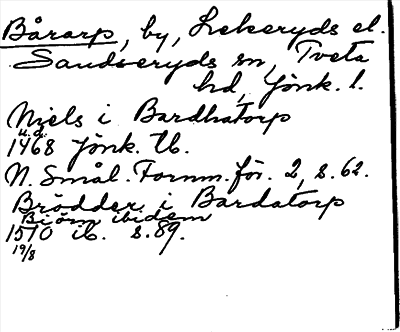 Bårarp, by, Lekeryds el.
Sandseryds sn, Tveta
hd, Jönk. l.
Niels i Bardhatorp
u.d.
1468 Jönk. tb.
N. Smål. Fornm. för. 2, s. 62.
Brödder i Bardatorp
Biörn ibidem
1510 ib. s. 89.
19/8